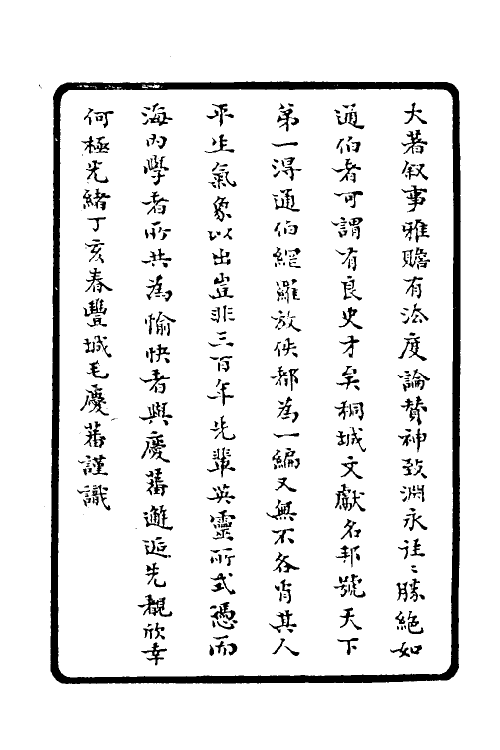 大著叙事雅贍有法度論贊神致淵永往〻勝絕如
通伯者可謂有良史才矣桐城文獻名邦號天下
第一得通伯網羅放佚都為一編又無不各肖其人
平生氣象以出豈非三百年先輩英靈所式憑而
海內學者所共為愉快者與慶蕃邂逅先覩欣幸
何極光緒丁亥春豐城毛慶蕃謹識